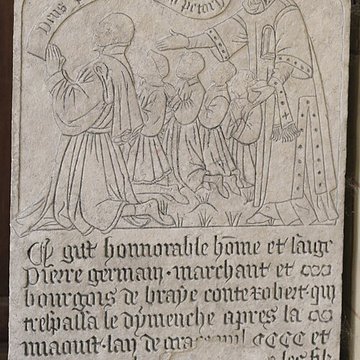 Deus
Cy gist honnorable hōme et saige
Pierre germain · marchant et
bourgois de braye conte robert · qui
trespassa le dymenche apres la
miaoust · lan de grace mil CCCC et